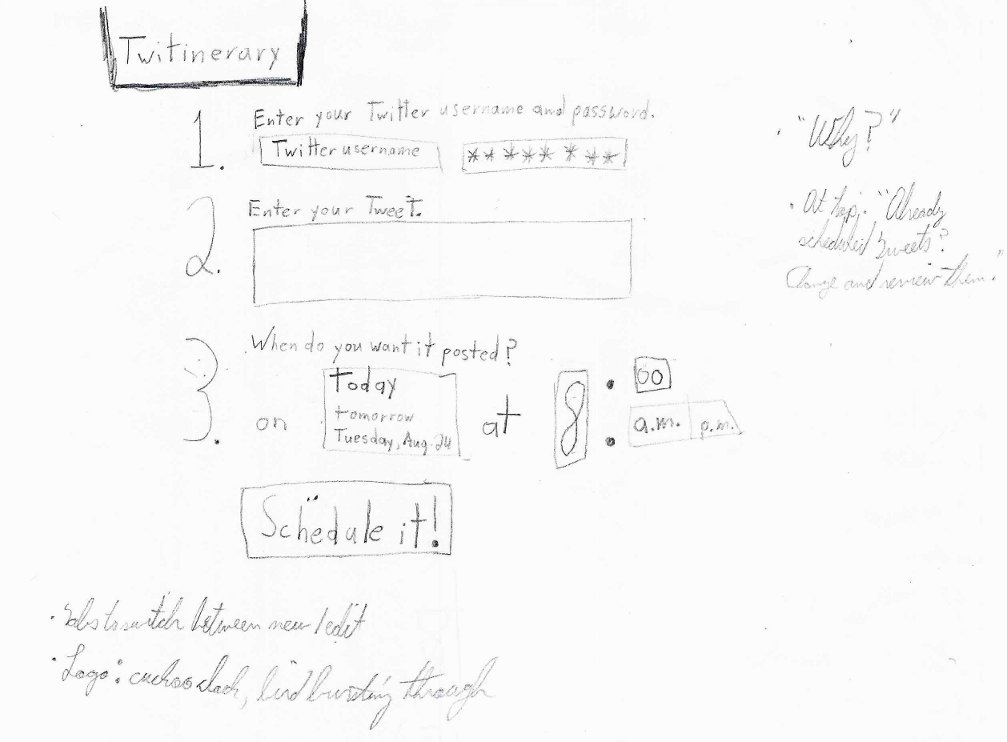 Twitinerary
1. Enter your Twitter username and password.
Twitter username ********
2. Enter your Tweet.
3. When do you want it posted?
on Today
tomorrow
Tuesday, Aug. 24
at 8 : 00
a.m. p.m.
Schedule it!
• "Why?"
• At top: "Already
scheduled tweets?
Change and review them."
• Tabs to switch between new/edit
• Logo: cuckoo clock, bird bursting through